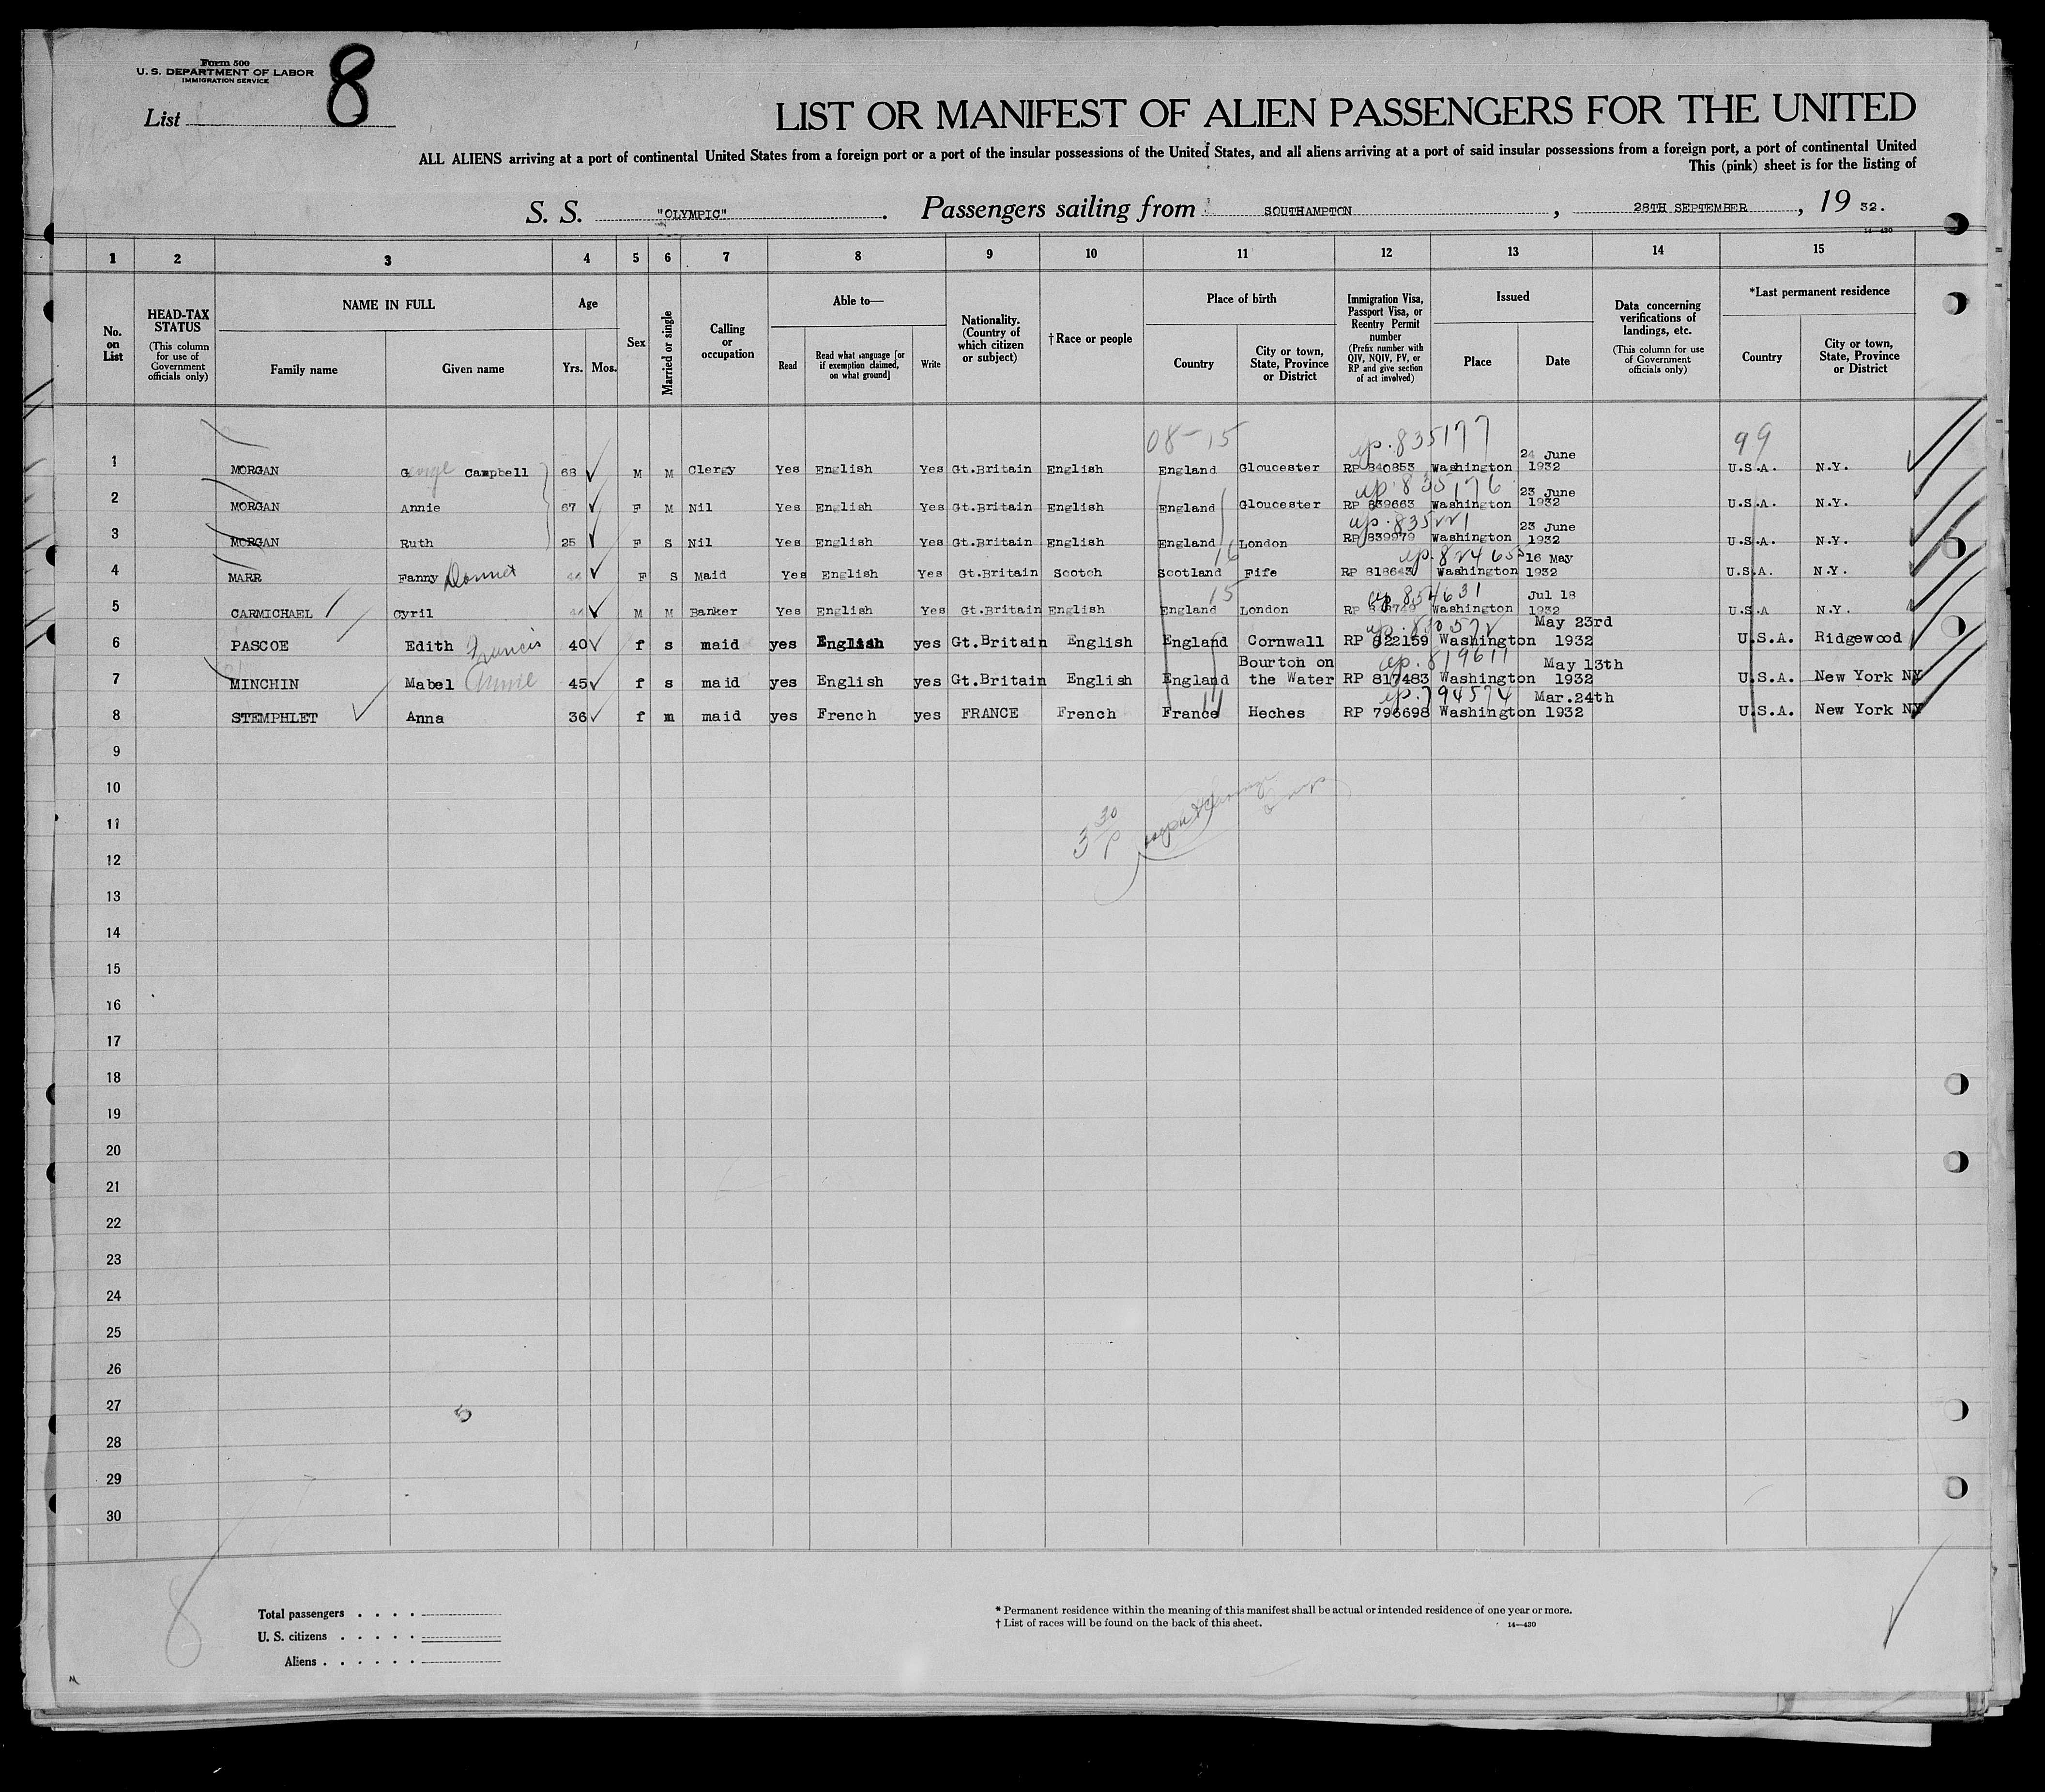 Form 500
U. S. DEPARTMENT OF LABOR
IMMIGRATION SERVICE
List 8
LIST OR MANIFEST OF ALIEN PASSENGERS FOR THE UNITED
ALL ALIENS arriving at a port of continental United States from a foreign port or a port of the insular possessions of the United States, and all aliens arriving at a port of said insular possessions from a foreign port, a port of continental United
This (pink) sheet is for the listing of
S. S. "OLYMPIC". Passengers sailing from SOUTHAMPTON, 28TH SEPTEMBER, 19 32.
14—430
1 2 3 4 5 6 7 8 9 10 11 12 13 14 15
No. on List
HEAD-TAX STATUS
(This column for use of Government officials only)
NAME IN FULL
Family name
Given name
Age
Yrs. Mos.
Sex
Married or single
Calling or occupation
Able to—
Read
Read what language [or if exemption claimed, on what ground]
Write
Nationality. (Country of which citizen or subject)
† Race or people
Place of birth
Country
City or town, State, Province or District
Immigration Visa, Passport Visa, or Reentry Permit number
(Prefix number with QIV, NQIV, PV, or RP and give section of act involved)
Issued
Place
Date
Data concerning verifications of landings, etc.
(This column for use of Government officials only)
*Last permanent residence
Country
City or town, State, Province or District
08-15 835177 99
1 MORGAN George Campbell 68 M M Clergy Yes English Yes Gt.Britain English England Gloucester RP 840853 Washington 24 June 1932 U.S.A. N.Y.
835176
2 MORGAN Annie 67 F M Nil Yes English Yes Gt.Britain English England Gloucester RP 839663 Washington 23 June 1932 U.S.A. N.Y.
3 MORGAN Ruth 25 F S Nil Yes English Yes Gt.Britain English England London RP 839979 Washington 23 June 1932 U.S.A. N.Y.
16
4 MARR Fanny 44 F S Maid Yes English Yes Gt.Britain Scotch Scotland Fife RP Washington 16 May 1932 U.S.A. N.Y.
15 854631
5 CARMICHAEL Cyril 44 M M Banker Yes English Yes Gt.Britain English England London RP Washington Jul 18 1932 U.S.A N.Y.
6 PASCOE Edith Francis 40 f s maid yes English yes Gt.Britain English England Cornwall RP 822159 Washington May 23rd 1932 U.S.A. Ridgewood
819611
7 MINCHIN Mabel Annie 45 f s maid yes English yes Gt.Britain English England Bourton on the Water RP 817483 Washington May 13th 1932 U.S.A. New York NY
794574
8 STEMPHLET Anna 36 f m maid yes French yes FRANCE French France Heches RP 796698 Washington Mar.24th 1932 U.S.A. New York NY
9
10
11
3 30 P
12
13
14
15
16
17
18
19
20
21
22
23
24
25
26
27
28
29
30
8
Total passengers . . . .
U. S. citizens . . . . .
Aliens . . . . . .
* Permanent residence within the meaning of this manifest shall be actual or intended residence of one year or more.
† List of races will be found on the back of this sheet.
14—430